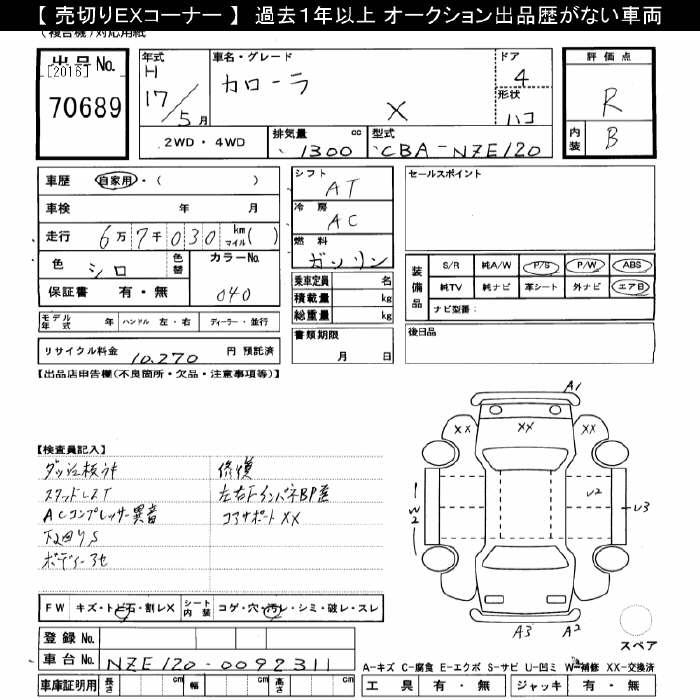 【 売切りEXコーナー 】 過去1年以上 オークション出品歴がない車両
(複合機)対応用紙
出品No.
[2016]
70689
年式 H 17/5月
車名・グレード カローラ X
ドア 4
形状 ハコ
2WD・4WD
排気量 1300 cc
型式 CBA-NZE120
評価点 R
内装 B
車歴 自家用・( )
車検 年 月
走行 6万7千030 km マイル( )
色 シロ 色替 カラーNo. 040
保証書 有・無
モデル年式 年 ハンドル 左・右 ディーラー・並行
リサイクル料金 10,270 円 預託済
シフト AT
冷房 AC
燃料 ガソリン
乗車定員 名
積載量 kg
総重量 kg
書類期限 月 日
セールスポイント
装備品
S/R 純A/W P/S P/W ABS
純TV 純ナビ 革シート 外ナビ エアB
ナビ型番:
後日品
【出品店申告欄(不良箇所・欠品・注意事項等)】
【検査員記入】
スタッドレスT
ACコンプレッサー異音
下回りS
ボディー
修復
左右FインパネBP歪
コアサポートXX
A1
XX XX XX
W2
U2
U3
A3 A2
スペア
FW キズ・トビ石・割レX シート内装 コゲ・穴・汚レ・シミ・破レ・スレ
登録No.
車台No. NZE120-0092311
車庫証明用 長さ cm 幅 cm 高さ cm
A-キズ C-腐食 E-エクボ S-サビ U-凹ミ W-補修 XX-交換済
工具 有・無 ジャッキ 有・無